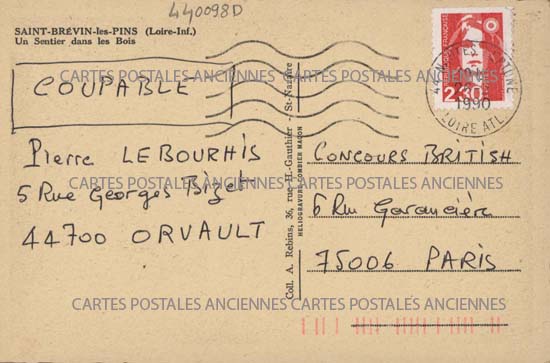 440098D
SAINT-BRÉVIN-les-PINS (Loire-Inf.)
Un Sentier dans les Bois
COUPABLE
Pierre LEBOURHIS
5 Rue Georges Bizet
44700 ORVAULT
Coll. A. Rebins, 36, rue H.-Gauthier - St-Nazaire
HELIOGRAVURE COMBIER MACON
2,30
1990
LOIRE ATL.
CONCOURS BRITISH
6 Rue Garancière
75006 PARIS
CARTES POSTALES ANCIENNES CARTES POSTALES ANCIENNES
CARTES POSTALES ANCIENNES CARTES POSTALES ANCIENNES
CARTES POSTALES ANCIENNES CARTES POSTALES ANCIENNES